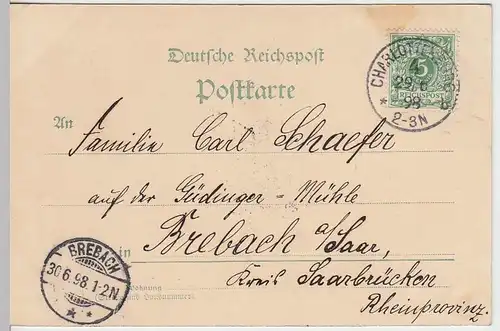 Deutsche Reichspost
Postkarte
CHARLOTTENBURG
4
29.6
98
2-3N
5
REICHSPOST
An
Familie Carl Schaefer
auf der Güdinger-Mühle
in Brebach a/Saar,
Kreis Saarbrücken
Rheinprovinz.
BREBACH
30.6.98.1-2N
Wohnung